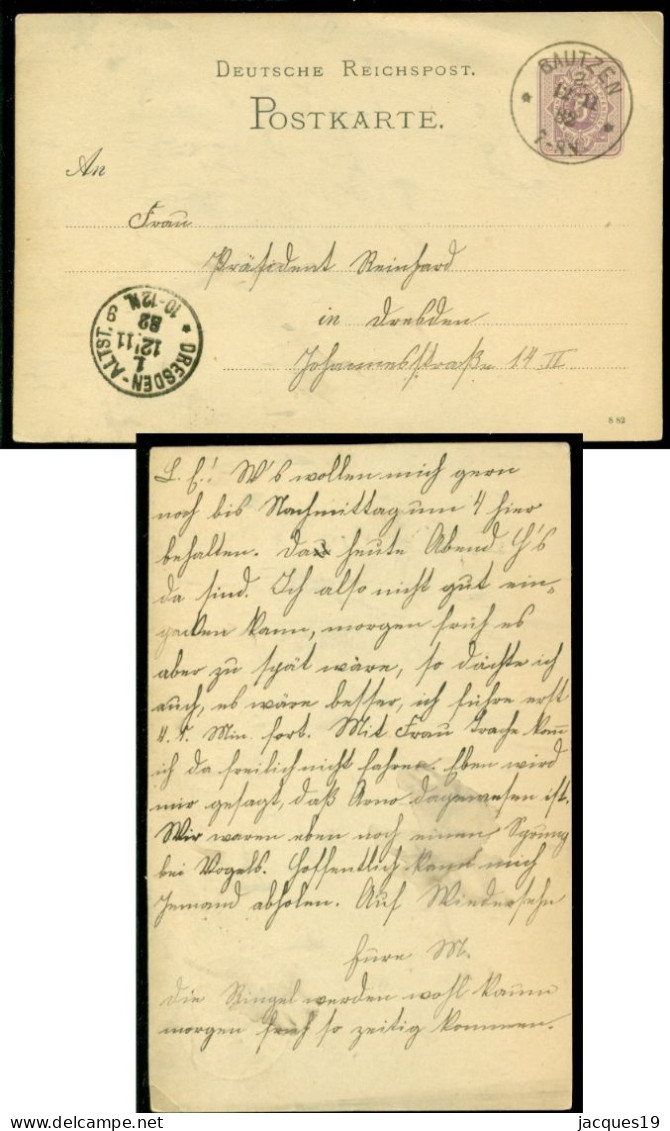 DEUTSCHE REICHSPOST.
POSTKARTE.
BAUTZEN
2
12 11
82
7-8N.
An
Frau
Präsident Reinhard
in Dresden
Johannesstraße 14 II
DRESDEN-ALTST.
1
12 11
82
10-12N.
8 82
L. E.! W's wollen mich gern
noch bis Nachmittag um 4 hier
behalten. Da heute Abend H's
da sind. Ich also nicht gut ein-
packen kann, morgen früh es
aber zu spät wäre, so dächte ich
auch, es wäre besser, ich führe erst
4. 7. Min. fort. Mit Frau Trache kann
ich da freilich nicht fahren. Eben wird
mir gesagt, daß Arno dagewesen ist.
Wir waren eben noch einen Sprung
bei Vogels. Hoffentlich kann mich
Jemand abholen. Auf Wiedersehn
Eure M.
Die Ringel werden wohl kaum
morgen früh so zeitig kommen.
jacques19